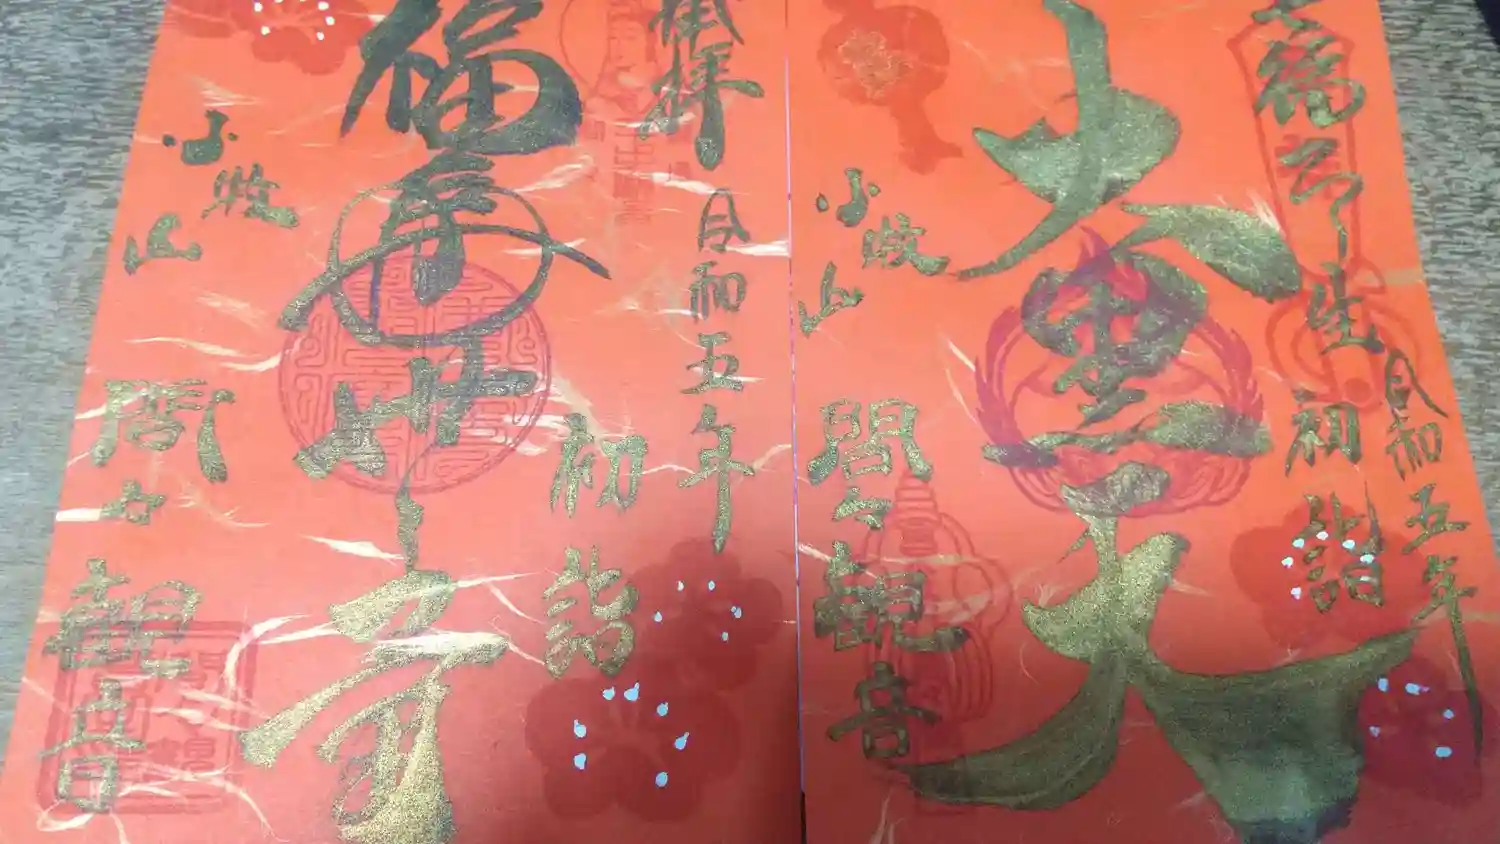 七福即生
令和五年
初詣
大黒天
小牧山
間々観音
奉拝
令和五年
初詣
福寿
小牧山
間々観音